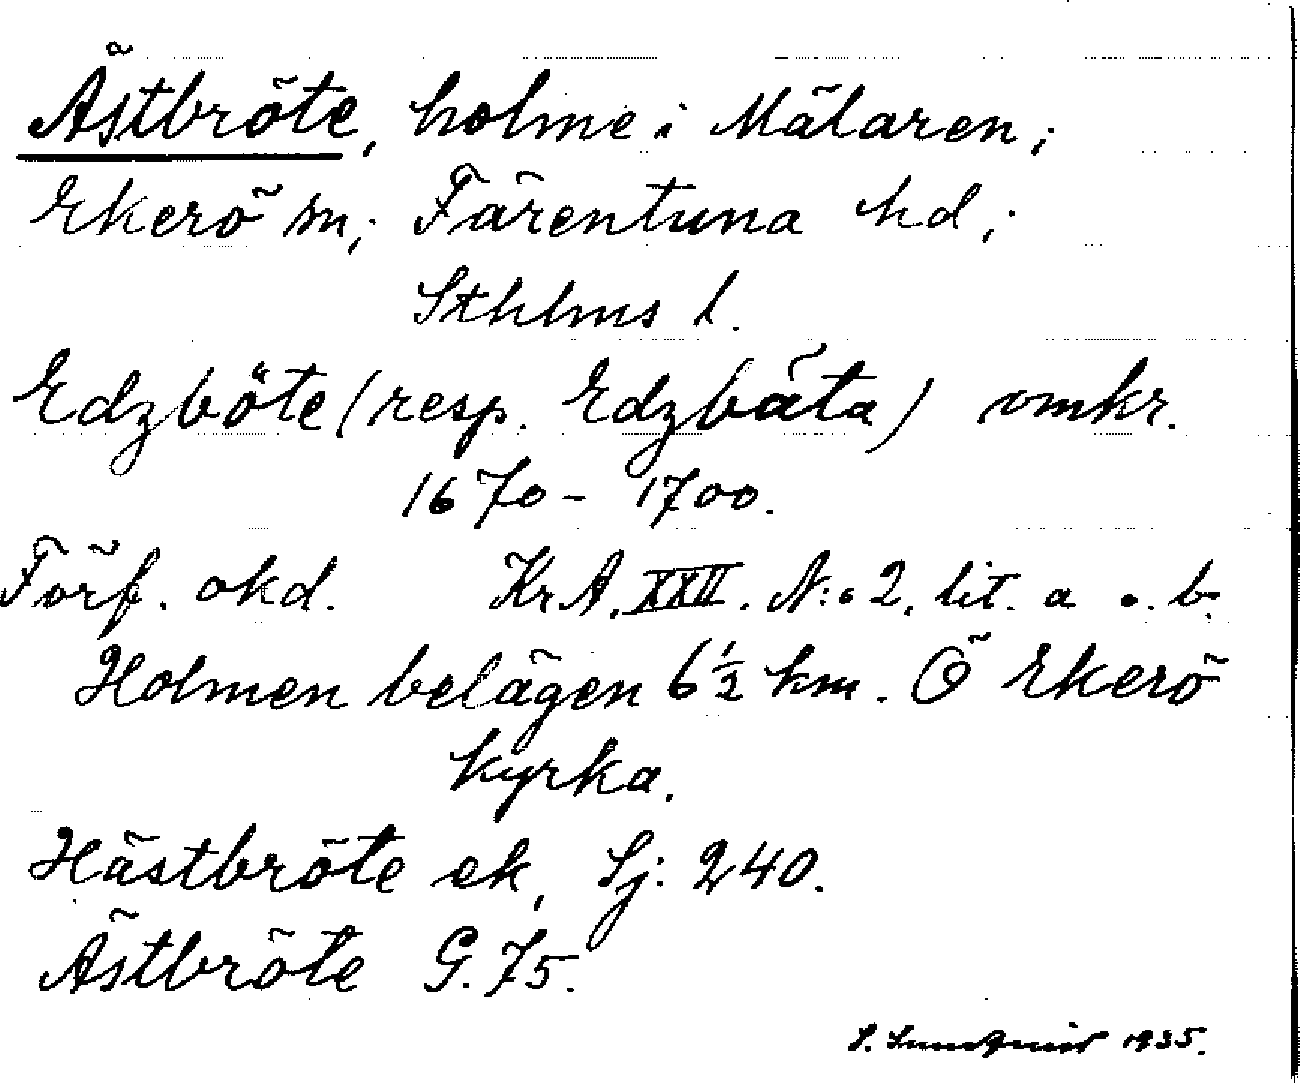 Ästbröte, holme i Mälaren;
Ekerö sn; Färentuna hd;
Sthlms l.
Edzböte (resp. Edzbäta) omkr.
1670 - 1700.
Förf. okd. KrA. XXII. N:o 2. lit. a o. b.
Holmen belägen 6 1/2 km. Ö Ekerö
kyrka.
Hästbröte ek, Sj: 240.
Ästbröte G. 75.
S. Sundquist 1935.